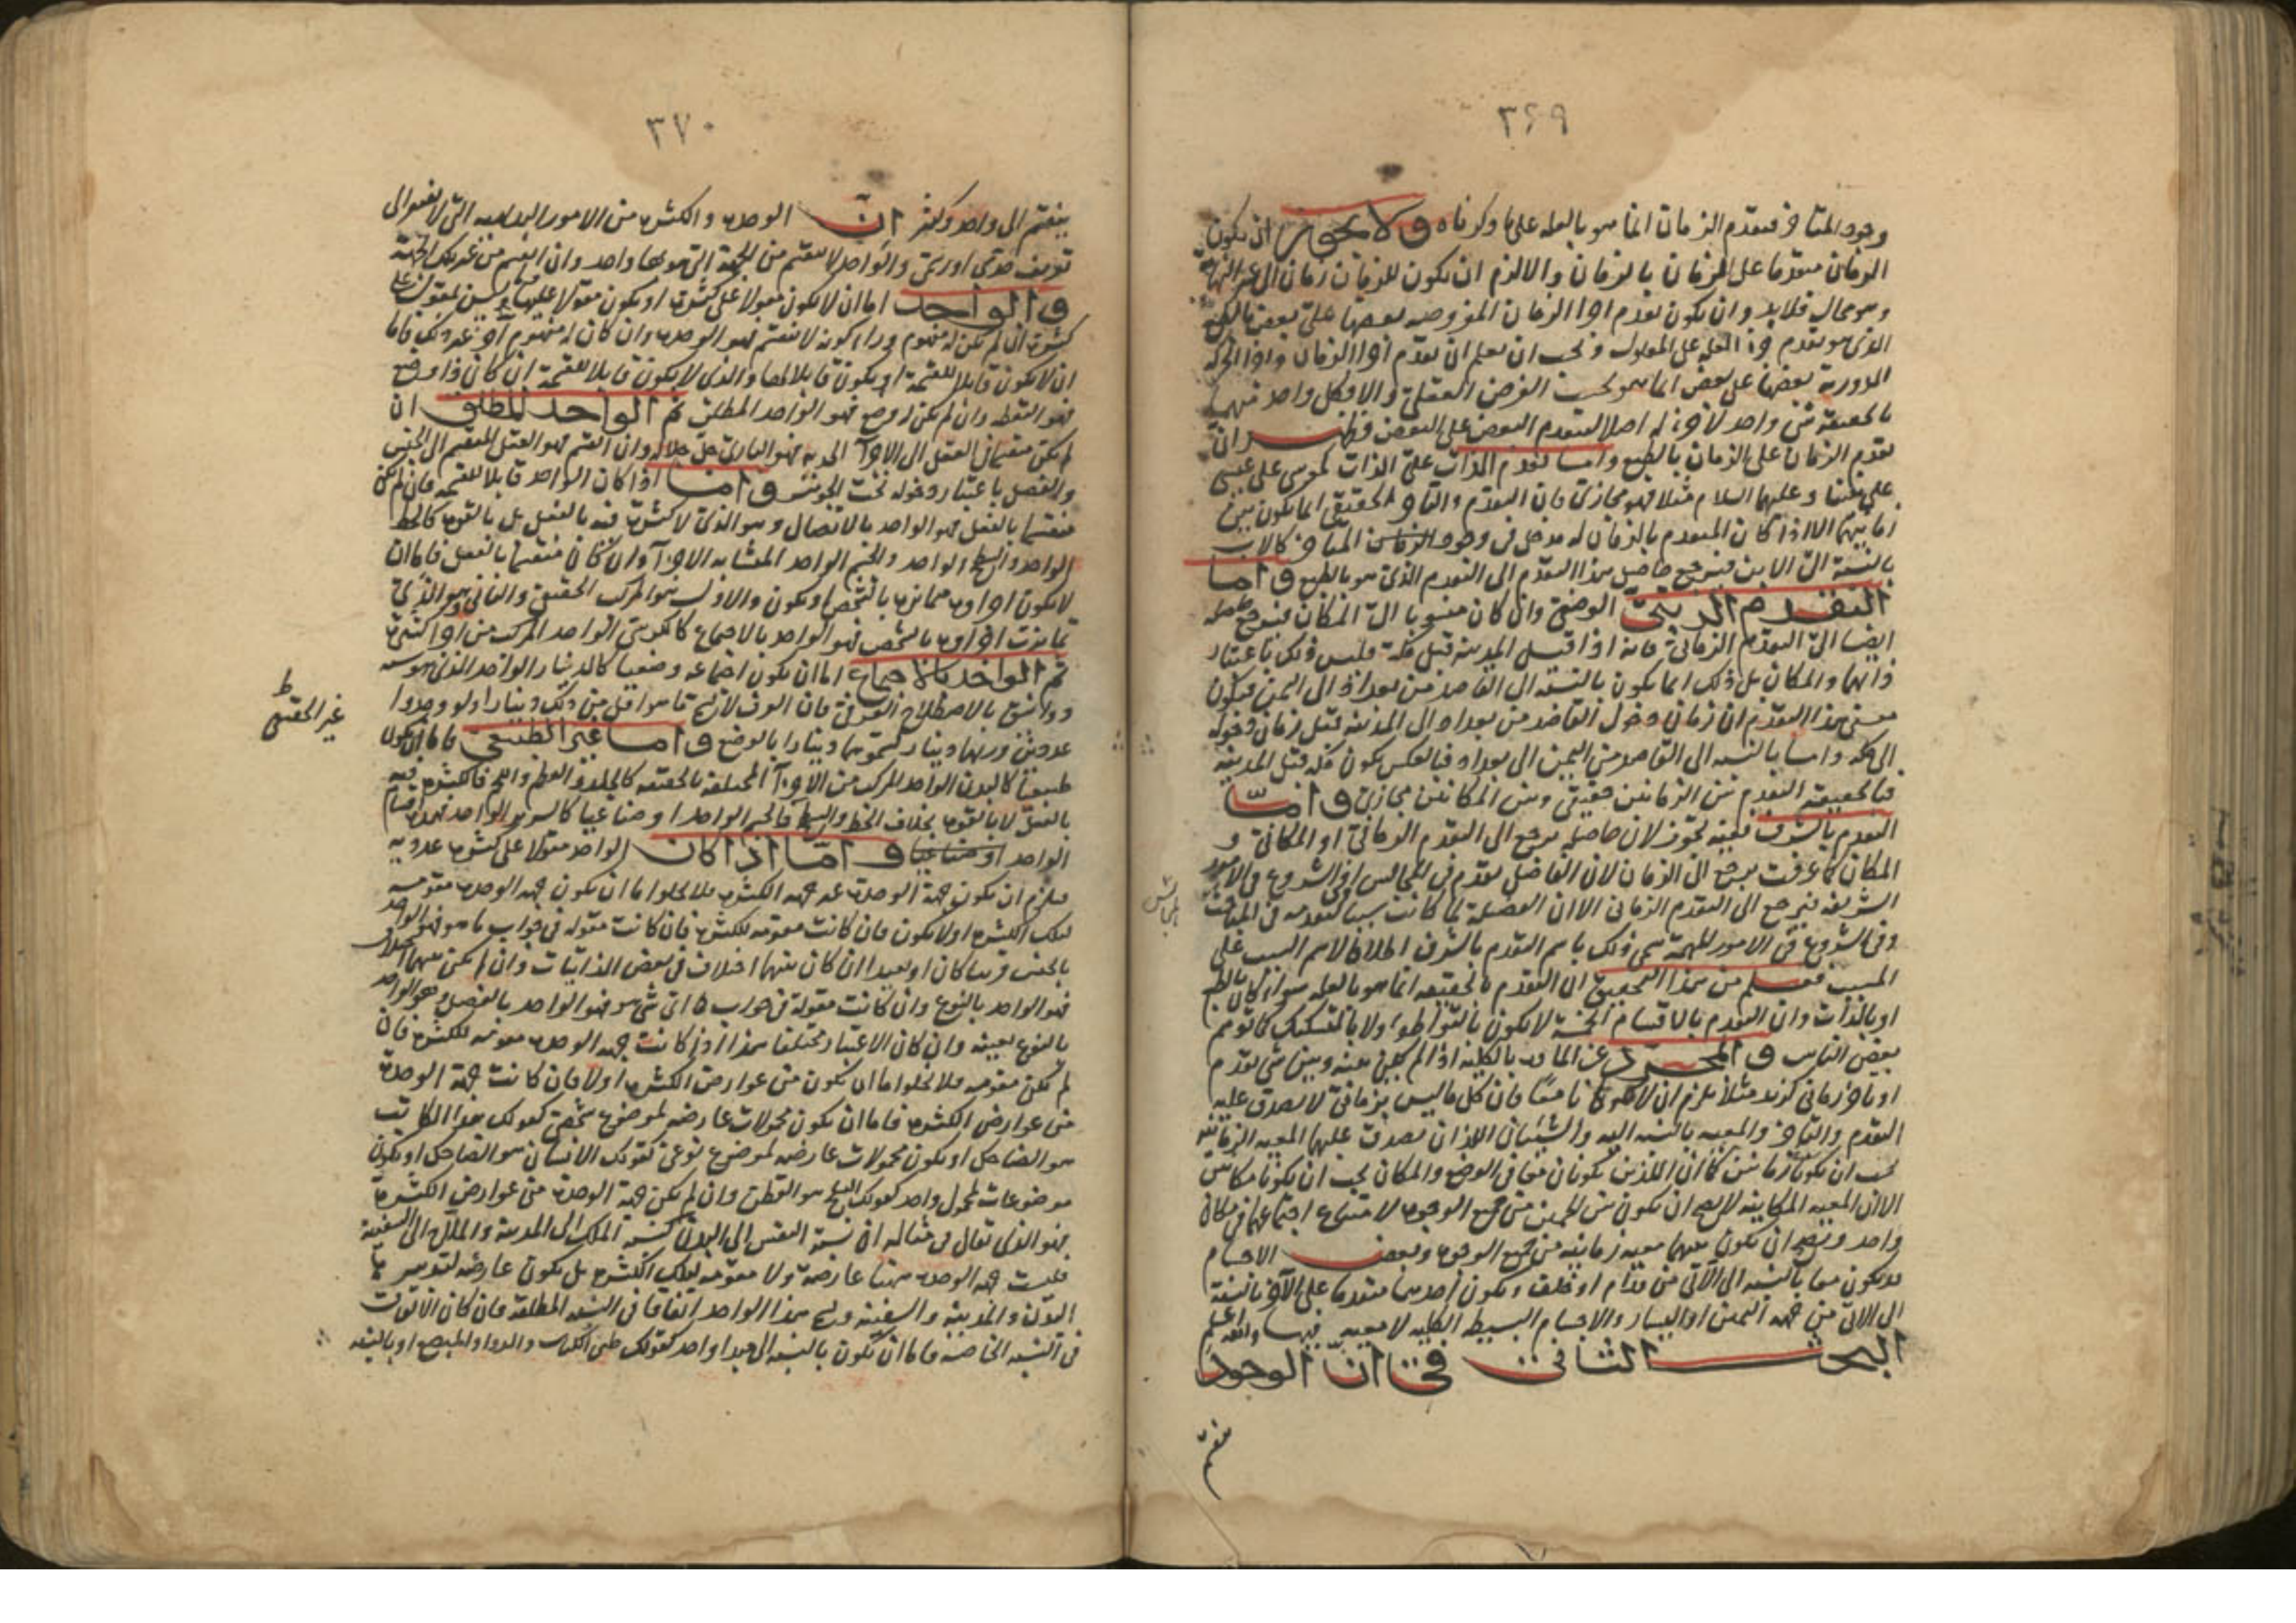 ٣٦٩
وجود المتاخر فتقدم الزمان انما هو بالعله على ما ذكرناه ولا يجوز ان يكون
الزمان متقدما على الزمان بالزمان والا لزم ان يكون للزمان زمان الى غير النهاية
وهو محال فلابد وان يكون تقدم اجزا الزمان المفروضه بعضها على بعض بالطبع
الذى هو تقدم جزء العله على المعلول ويجب ان يعلم ان تقدم اجزا الزمان واجزا الحركه
الدورية بعضها على بعض انما هو بحسب الفرض العقلى والا فكل واحد منهما
بالحقيقة شى واحد لا جزء له اصلا ليتقدم البعض على البعض فظهر ان
تقدم الزمان على الزمان بالطبع واما تقدم الذات على الذات كموسى على عيسى
على نبينا وعليهما السلام مثلا فهو مجازى فان التقدم والتاخر الحقيقى انما يكون بين
زمانيهما الا اذا كان المتقدم بالزمان له مدخل فى وجود المتاخر كالاب
بالنسبة الى الابن فيرجع حاصل هذا التقدم الى التقدم الذى هو بالطبع واما
التقدم الرتبى الوضعى وان كان منسوبا الى المكان فيرجع حاصله
ايضا الى التقدم الزمانى فانه اذا قيل المدينة قبل مكة فليس ذلك باعتبار
ذاتهما والمكان بل ذلك انما يكون بالنسبه الى القاصد من بغداد الى اليمن فيكون
معنى هذا التقدم ان زمان دخول القاصد من بغداد الى المدينة قبل زمان دخوله
الى مكه واما بالنسبه الى القاصد من اليمن الى بغداد فبالعكس يكون مكه قبل المدينة
فبالحقيقة التقدم بين الزمانين حقيقى وبين المكانين مجازى واما
التقدم بالشرف ففيه تجوز لان حاصله يرجع الى التقدم الزمانى او المكانى و
المكان كما عرفت يرجع الى الزمان لان الفاضل يقدم فى المجالس او فى الشروع فى الامور
الشريفه فيرجع الى التقدم الزمانى الا ان الفضيلة لما كانت سببا لتقدمه فى المجالس
وفى الشروع فى الامور المهمة سمى ذلك باسم التقدم بالشرف اطلاقا لاسم السبب على
المسبب فعلم من هذا التحقيق ان التقدم بالحقيقه انما هو بالعله سواء كان بالطبع
او بالذات وان التقدم بالاقسام الخمسة لا يكون بالتواطو ولا بالتشكيك كما توهم
بعض الناس والمجرد عن المادة بالكليه اذا لم يكن بينه وبين شى تقدم
او تاخر زمانى كزيد مثلا يلزم ان لا يكونا معا فان كل ما ليس بزمانى لا يصدق عليه
التقدم والتاخر والمعيه بالنسبه اليه والشيئان اللذان يصدق عليهما المعيه الزمانية
يجب ان يكونا زمانيين كما ان اللذين يكونان معا فى الوضع والمكان يجب ان يكونا مكانيين
الا ان المعيه المكانيه لا يصح ان يكون بين الجسمين من جميع الوجوه لامتناع اجتماعهما فى مكان
واحد ويصح ان يكون بينهما معيه زمانيه من جميع الوجوه وبعض الاجسام
قد يكون معا بالنسبه الى الآتى من قدام او خلف ويكون احدهما متقدما على الآخر بالنسبة
الى الآتى من جهه اليمين او اليسار والاجسام البسيطه الكليه لا معيه فيها والله اعلم
البحث الثانى فى ان الوجود
٣٧٠
ينقسم الى واحد وكثير ان الوحدة والكثرة من الامور البديهيه التى لا تفتقر الى
تعريف حدى او رسمى والواحد لا ينقسم من الجهة التى هو بها واحد وان انقسم من غير تلك الجهة
والواحد اما ان لا يكون مقولا على كثرة او يكون مقولا عليها وليس بمقول على
كثرة ان لم يكن له مفهوم وراء كونه لا ينقسم فهو الوحدة وان كان له مفهوم آخر غير ذلك فاما
ان لا يكون قابلا للقسمة او يكون قابلا لها والذى لا يكون قابلا للقسمة ان كان ذا وضع
فهو النقطه وان لم يكن ذا وضع فهو الواحد المطلق ثم الواحد المطلق ان
لم يكن منقسما فى العقل الى الاجزاء الحديه فهو البارى جل جلاله وان انقسم فهو العقل المنقسم الى الجنس
والفصل باعتبار دخوله تحت الجوهر واما اذا كان الواحد قابلا للقسمه فان لم يكن
منقسما بالفعل فهو الواحد بالاتصال وهو الذى لا كثرة فيه بالفعل بل بالقوة كالخط
الواحد والسطح الواحد والجسم الواحد المتشابه الاجزاء وان كان منقسما بالفعل فاما ان
لا يكون اجزاوه متمايزة بالتشخص او يكون والاول هو المركب الحقيقى والثانى وهو الذى
تمايزت اجزاوه بالتشخص فهو الواحد بالاجتماع كالكرسى الواحد المركب من اجزا كثيرة
ثم الواحد بالاجتماع اما ان يكون اجتماعه وضعيا كالدينار الواحد الذى هو ستة
ودوانيق بالاصطلاح العرفى فان العرف لا تسمى ما هو اقل من ذلك دينارا ولو وجدوا
عدوين وزنهما دينار لسموهما دينارا بالوضع واما غير الطبيعى فاما ان يكون
طبيعيا كالبدن الواحد المركب من الاجزاء المختلفه بالحقيقه كالجلد والعظم واللحم فالكثرة فيه
بالفعل لا بالقوة بخلاف الخط والسطح والجسم الواحد او صناعيا كالسرير الواحد فهذه اقسام
الواحد واما اذا كان الواحد مقولا على كثرة عدديه
فيلزم ان يكون جهة الوحدة غير جهه الكثرة فلا يخلوا اما ان يكون جهه الوحدة مقومه
لتلك الكثرة او لا يكون فان كانت مقومه للكثرة فان كانت مقوله فى جواب ما هو فهو الواحد
بالجنس قريبا كان او بعيدا ان كان بينها اختلاف فى بعض الذاتيات وان لم يكن بينهما اختلاف
فهو الواحد بالنوع وان كانت مقولة فى جواب اى شى هو فهو الواحد بالفصل وهو الواحد
بالنوع بعينه وان كان الاعتبار مختلفا هذا اذا كانت جهه الوحدة مقومه للكثرة فان
لم يكن مقومه فلا يخلوا اما ان يكون من عوارض الكثرة او لا فان كانت جهة الوحدة
من عوارض الكثرة فاما ان يكون محمولات عارضه لموضوع شخصى كقولك هذا الكاتب
هو الضاحك او يكون محمولات عارضه لموضوع نوعى كقولك الانسان هو الضاحك او يكون
موضوعات لمحمول واحد كقولك الثلج هو القطن وان لم يكن جهة الوحدة من عوارض الكثرة
فهو الذى يقال فى مثاله ان نسبة النفس الى البدن كنسبة الملك الى المدينة والملاح الى السفينة
فليست جهه الوحدة هنا عارضة ولا مقومه لتلك الكثرة بل يكون عارضه لتدبير
البدن والمدينه والسفينه ويسمى هذا الواحد اتفاقا فى النسبه المطلقه فان كان الاتفاق
فى النسبه الخاصه فاما ان يكون بالنسبه الى مبدا واحد كقولك طبى للكتاب والدواء والمبضع او بالنسبه
غير الحقيقى
المجالس
ينقسم